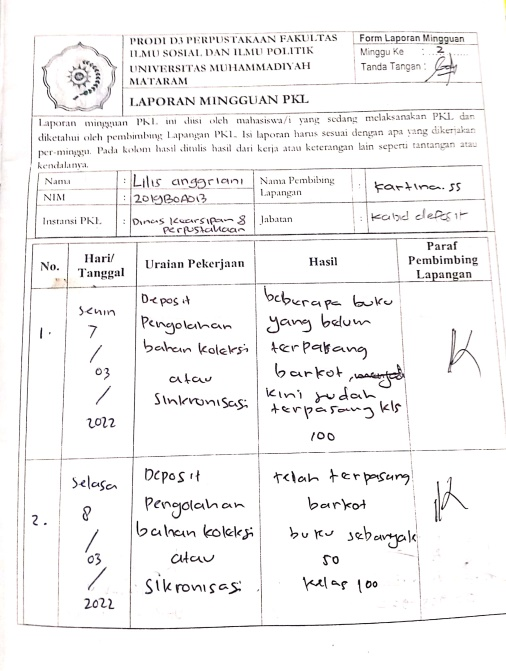 PRODI D3 PERPUSTAKAAN FAKULTAS
ILMU SOSIAL DAN ILMU POLITIK
UNIVERSITAS MUHAMMADIYAH
MATARAM
LAPORAN MINGGUAN PKL
Form Laporan Mingguan
Minggu Ke : 2
Tanda Tangan :
Laporan mingguan PKL ini diisi oleh mahasiswa/i yang sedang melaksanakan PKL dan
diketahui oleh pembimbing Lapangan PKL. Isi laporan harus sesuai dengan apa yang dikerjakan
per-minggu. Pada kolom hasil ditulis hasil dari kerja atau keterangan lain seperti tantangan atau
kendalanya.
Nama : Lilis anggriani
NIM : 2019B0A013
Instansi PKL : Dinas Kearsipan &
perpustakaan
Nama Pembibing
Lapangan : Kartina.SS
Jabatan : Kabid deposit
No. Hari/ Tanggal Uraian Pekerjaan Hasil Paraf Pembimbing Lapangan
1.
Senin
7
/
03
/
2022
Deposit
Pengolahan
bahan koleksi
atau
Sinkronisasi
beberapa buku
yang belum
terpasang
barkot,
kini sudah
terpasang kls
100
2.
Selasa
8
/
03
/
2022
Deposit
Pengolahan
bahan koleksi
atau
Sikronisasi
telah terpasang
barkot
buku sebanyak
50
kelas 100